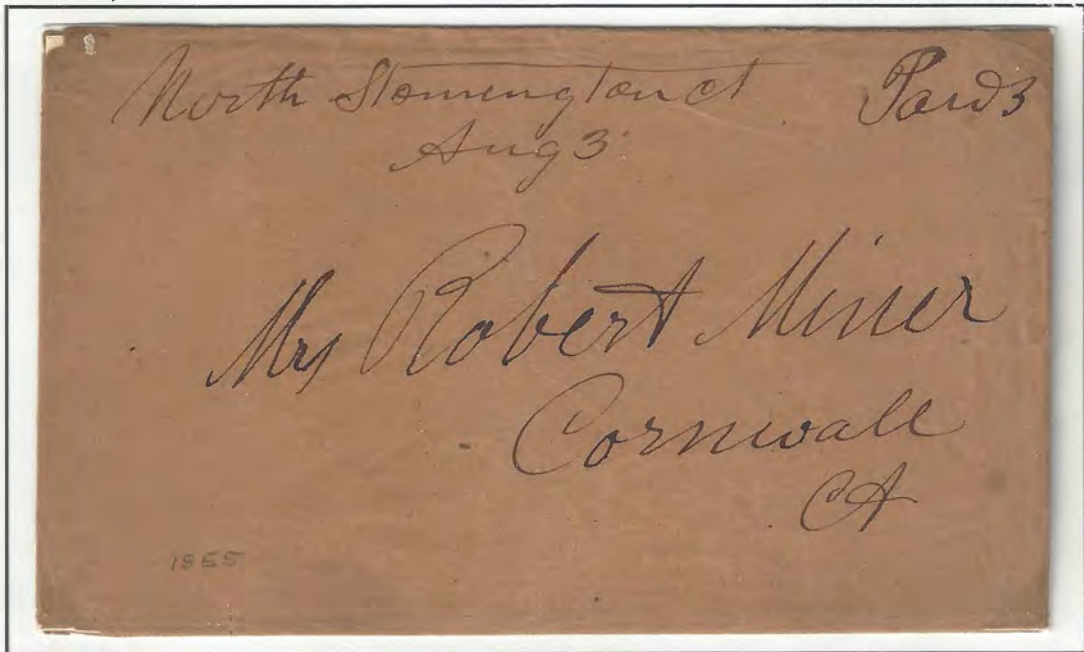 North Stonington Ct Paid 3
Aug 3
Mrs Robert Miner
Cornwall
Ct
1855